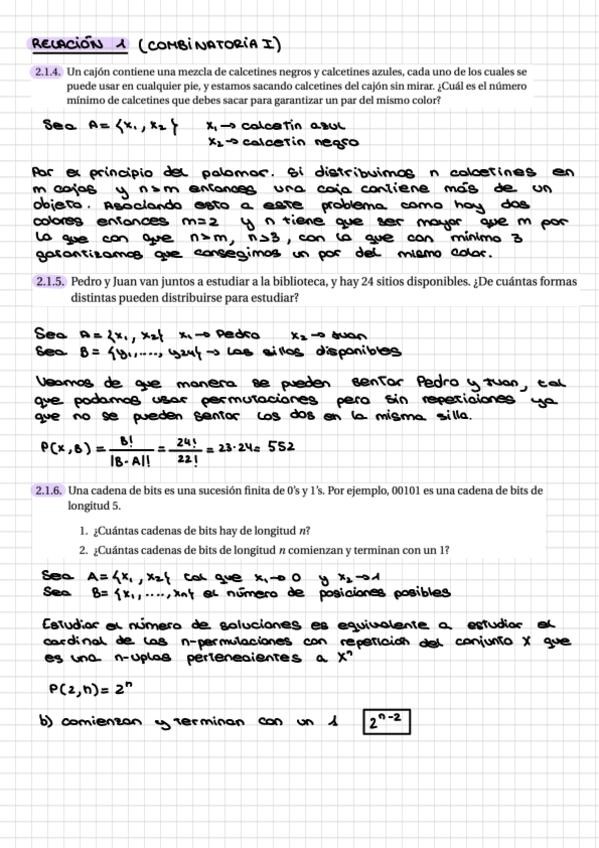 RELACIÓN 1 (COMBINATORIA I)
2.1.4. Un cajón contiene una mezcla de calcetines negros y calcetines azules, cada uno de los cuales se
puede usar en cualquier pie, y estamos sacando calcetines del cajón sin mirar. ¿Cuál es el número
mínimo de calcetines que debes sacar para garantizar un par del mismo color?
Sea A = {x₁, x₂} x₁ → calcetín azul
x₂ → calcetín negro
Por el principio del palomar. Si distribuimos n calcetines en
m cajas y n>m entonces una caja contiene más de un
objeto. Asociando esto a este problema como hay dos
colores entonces m=2 y n tiene que ser mayor que m por
lo que con que n>m, n≥3, con lo que con mínimo 3
garantizamos que consegimos un par del mismo color.
2.1.5. Pedro y Juan van juntos a estudiar a la biblioteca, y hay 24 sitios disponibles. ¿De cuántas formas
distintas pueden distribuirse para estudiar?
Sea A = {x₁, x₂} x₁ → Pedro x₂ → Juan
Sea B = {y₁, ..., y24} → Las sillas disponibles
Veamos de que manera se pueden sentar Pedro y Juan, tal
que podamos usar permutaciones pero sin repeticiones ya
que no se pueden sentar los dos en la misma silla.
P(x,B) = B!/|B-A|! = 24!/22! = 23·24 = 552
2.1.6. Una cadena de bits es una sucesión finita de 0's y 1's. Por ejemplo, 00101 es una cadena de bits de
longitud 5.
1. ¿Cuántas cadenas de bits hay de longitud n?
2. ¿Cuántas cadenas de bits de longitud n comienzan y terminan con un 1?
Sea A = {x₁, x₂} tal que x₁ → 0 y x₂ → 1
Sea B = {x₁, ..., xn} el número de posiciones posibles
Estudiar el número de soluciones es equivalente a estudiar el
cardinal de las n-permutaciones con repetición del conjunto X que
es una n-uplas pertenecientes a Xⁿ
P(2,n) = 2ⁿ
b) comienzan y terminan con un 1 2ⁿ⁻²